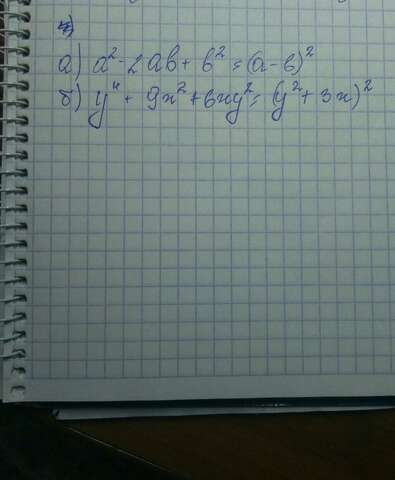 а) a² - 2ab + b² = (a - b)²
б) y⁴ + 9x² + 6xy² = (y² + 3x)²